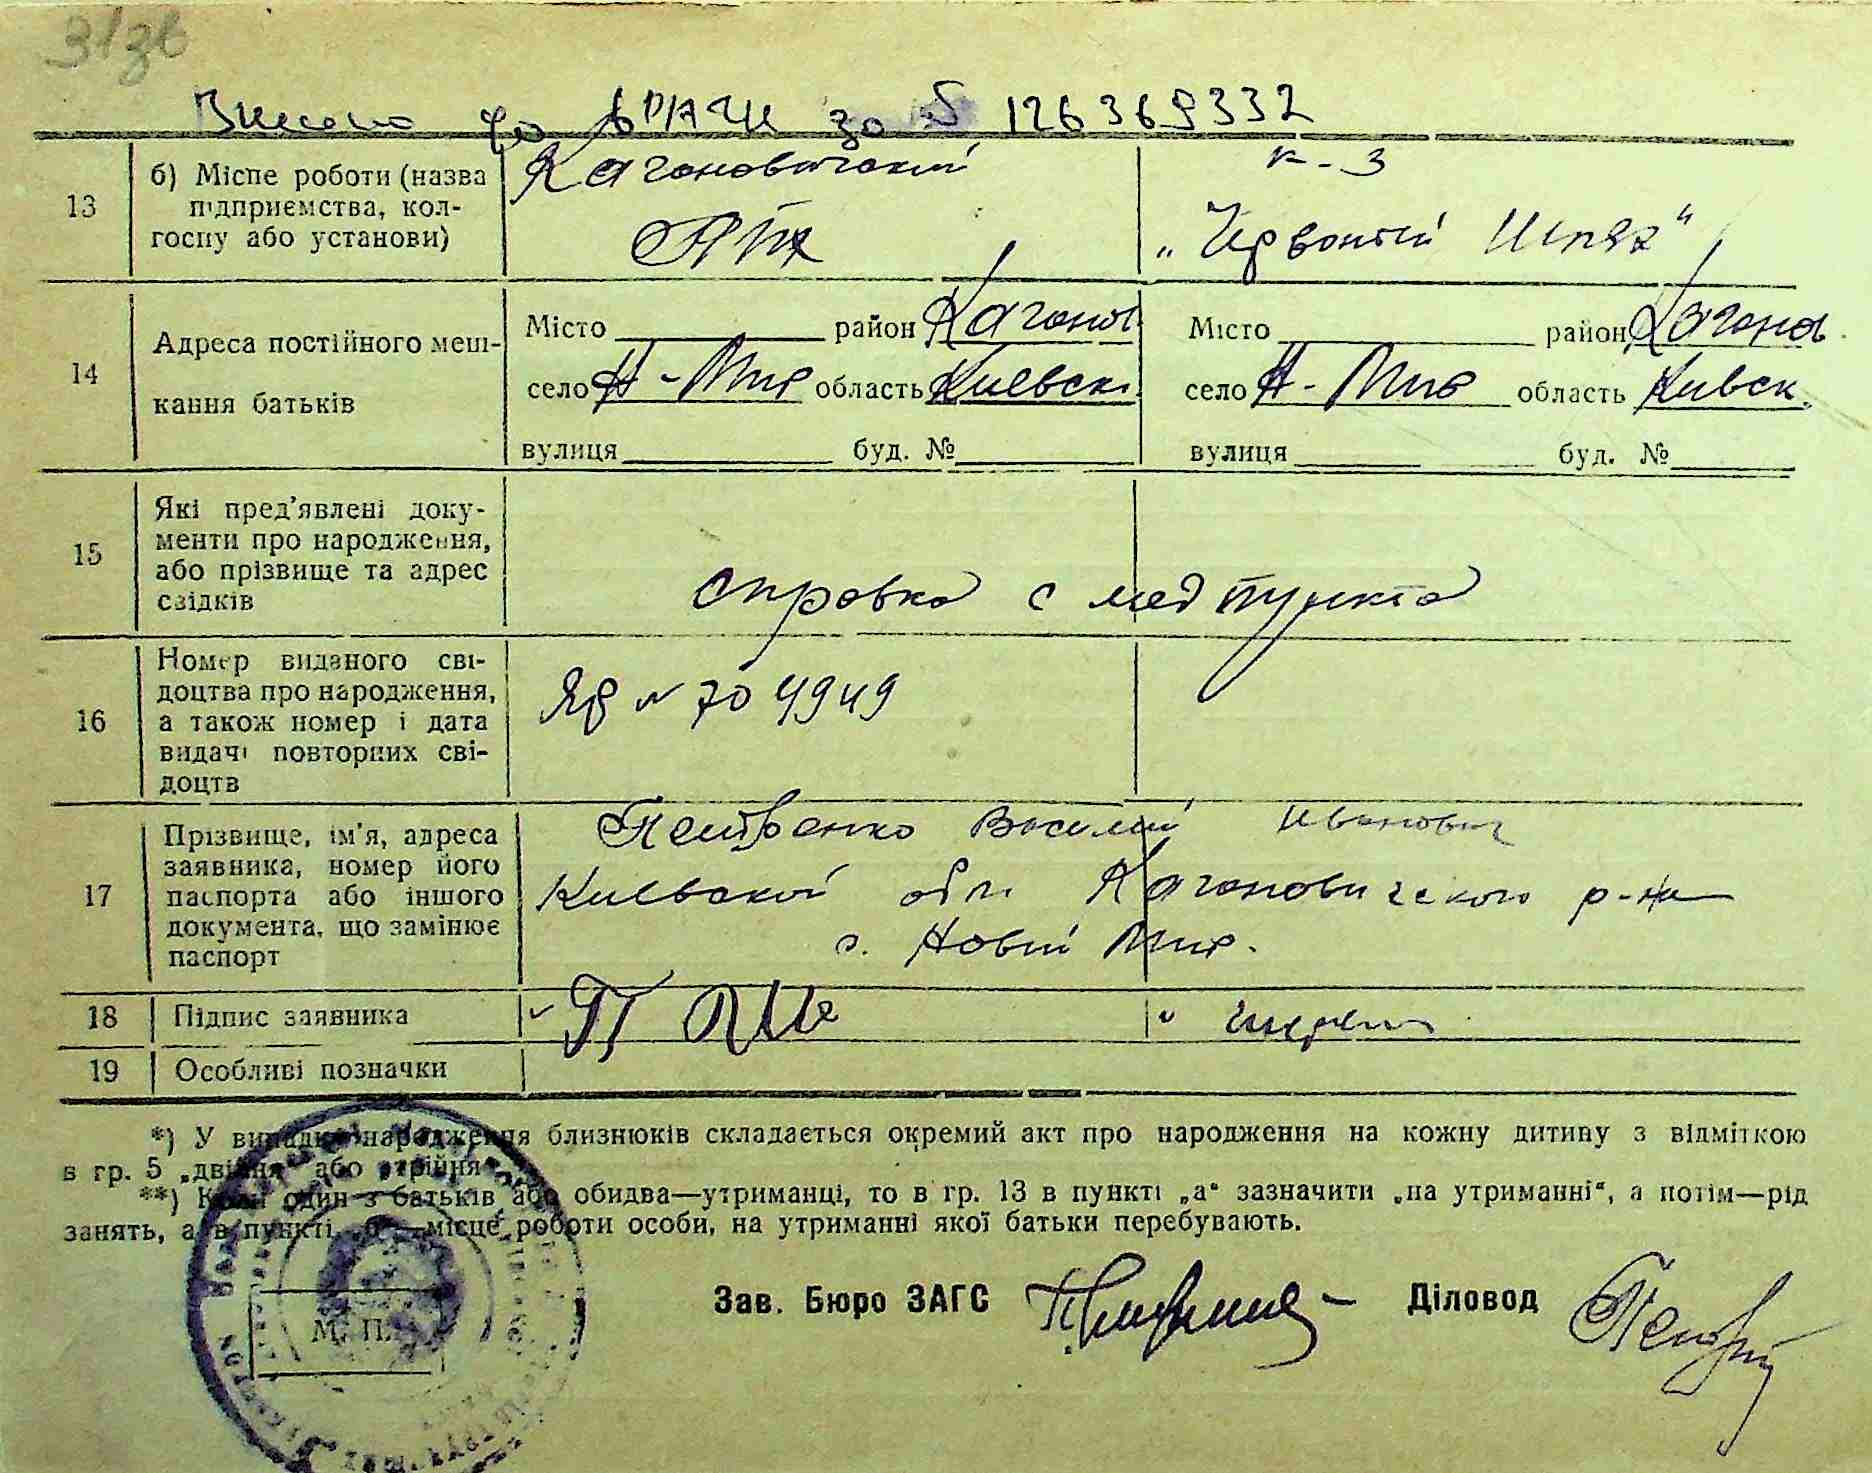 31зв
Внесено до ДРАЦС за № 126369332
13 б) Місце роботи (назва підприємства, колгоспу або установи) Кагановичский к-з
РТК „Червоний Шлях“
14 Адреса постійного мешкання батьків
Місто район Каганов Місто район Каганов
село Н-Мир область Киевск. село Н-Мир область Кивск.
вулиця буд. № вулиця буд. №
15 Які пред'явлені документи про народження, або прізвище та адрес свідків
справка с медпункта
16 Номер виданого свідоцтва про народження, а також номер і дата видачі повторних свідоцтв
ЯР № 704949
17 Прізвище, ім'я, адреса заявника, номер його паспорта або іншого документа, що замінює паспорт
Петренко Василий Иванович
Киевской обл. Кагановичского р-на
с. Новий Мир.
18 Підпис заявника
19 Особливі позначки
*) У випадку народження близнюків складається окремий акт про народження на кожну дитину з відміткою
в гр. 5 „двійня“ або „трійня“.
**) Коли один з батьків або обидва—утриманці, то в гр. 13 в пункті „а“ зазначити „на утриманні“, а потім—рід
занять, а в пункті „б“—місце роботи особи, на утриманні якої батьки перебувають.
Зав. Бюро ЗАГС Діловод
М. П.